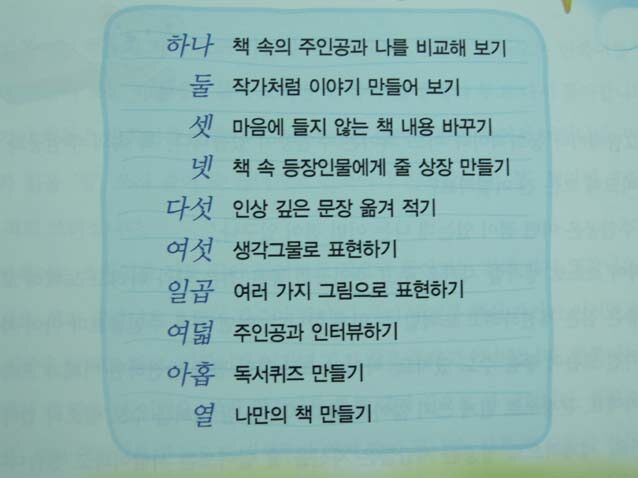 하나 책 속의 주인공과 나를 비교해 보기
둘 작가처럼 이야기 만들어 보기
셋 마음에 들지 않는 책 내용 바꾸기
넷 책 속 등장인물에게 줄 상장 만들기
다섯 인상 깊은 문장 옮겨 적기
여섯 생각그물로 표현하기
일곱 여러 가지 그림으로 표현하기
여덟 주인공과 인터뷰하기
아홉 독서퀴즈 만들기
열 나만의 책 만들기